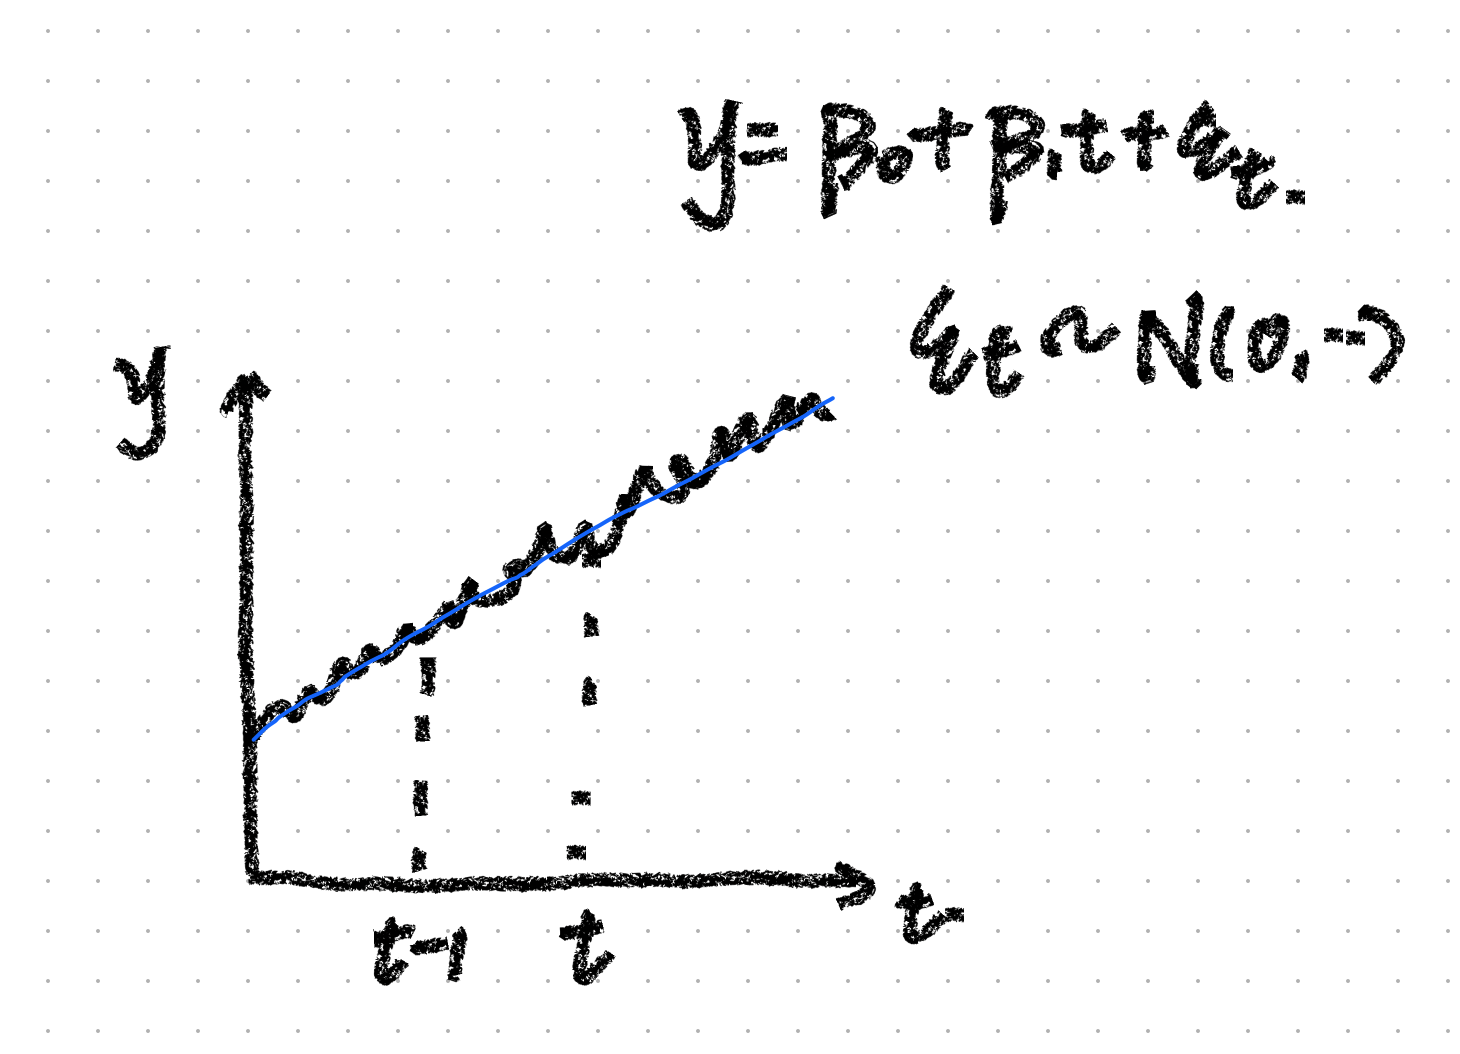 y = β₀ + β₁t + εₜ
εₜ ~ N(0, --)
y
t-1 t
t